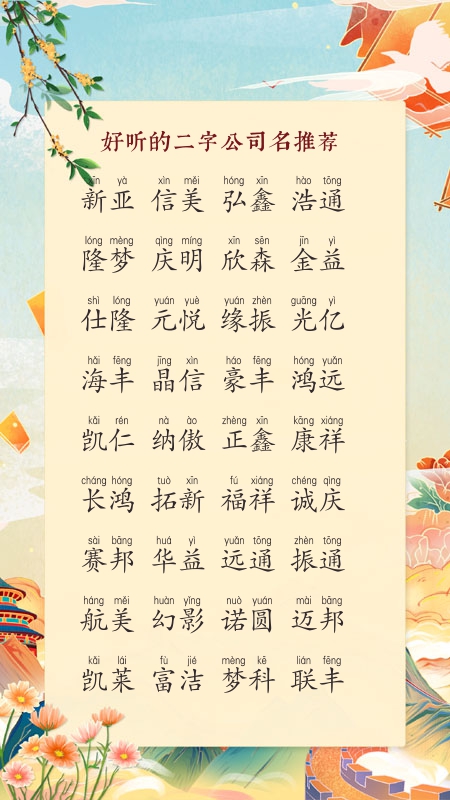 好听的二字公司名推荐
xīn yà xìn měi hóng xīn hào tōng
新亚 信美 弘鑫 浩通
lóng mèng qìng míng xīn sēn jīn yì
隆梦 庆明 欣森 金益
shì lóng yuán yuè yuán zhèn guāng yì
仕隆 元悦 缘振 光亿
hǎi fēng jīng xìn háo fēng hóng yuǎn
海丰 晶信 豪丰 鸿远
kǎi rén nà ào zhèng xīn kāng xiáng
凯仁 纳傲 正鑫 康祥
cháng hóng tuò xīn fú xiáng chéng qìng
长鸿 拓新 福祥 诚庆
sài bāng huá yì yuǎn tōng zhèn tōng
赛邦 华益 远通 振通
háng měi huàn yǐng nuò yuán mài bāng
航美 幻影 诺圆 迈邦
kǎi lái fù jié mèng kē lián fēng
凯莱 富洁 梦科 联丰